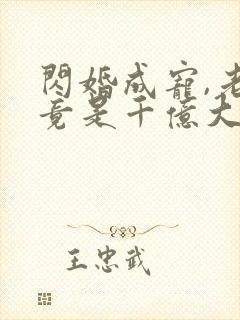 閃婚成寵,老
竟是千億大
王忠武